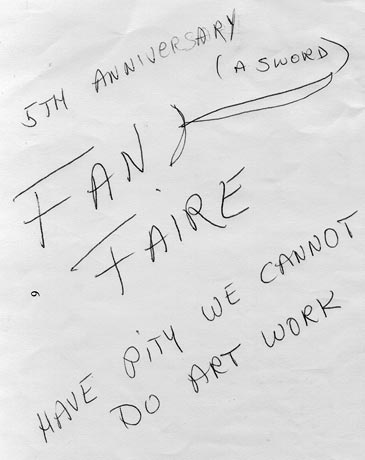 5TH ANNIVERSARY
(A SWORD)
FAN
FAIRE
6
HAVE PITY WE CANNOT
DO ART WORK